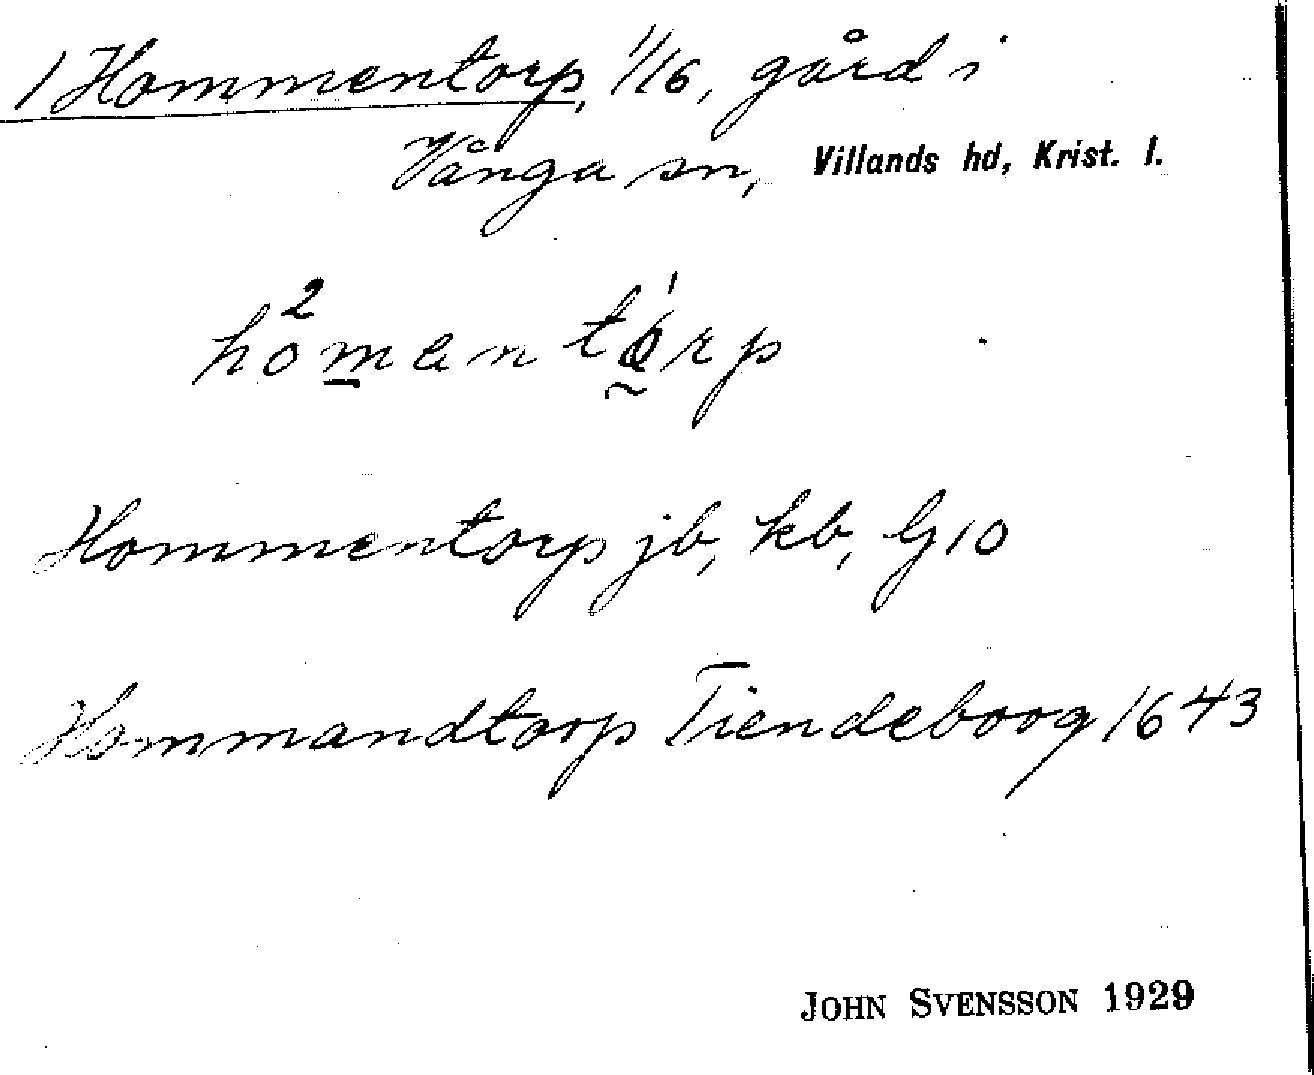 1 Hommentorp, 1/16, gård i
Vånga sn, Villands hd, Krist. l.
ho²mentó̰rp
Hommentorp jb, kb, G10
Hommandtorp Tiendeboog 1643
JOHN SVENSSON 1929